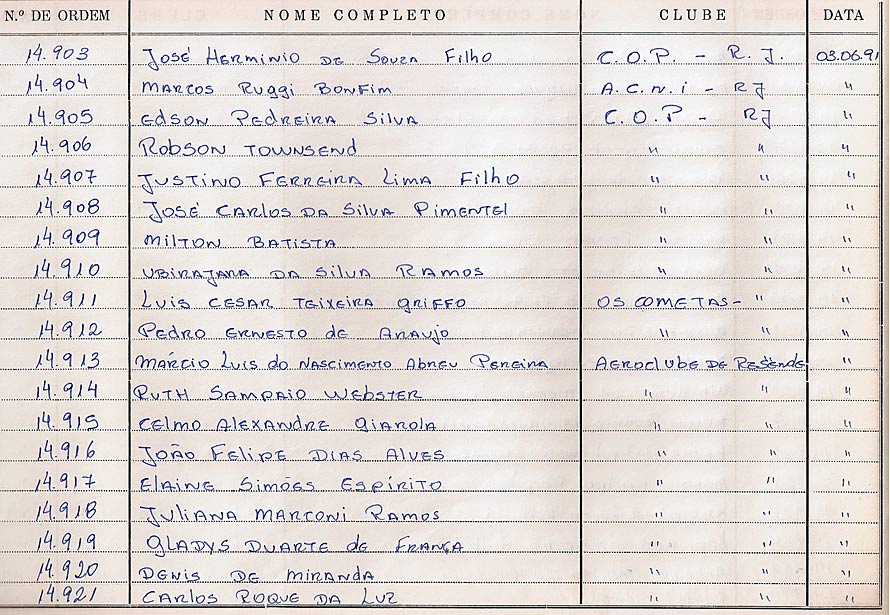 N.º DE ORDEM NOME COMPLETO CLUBE DATA
14.903 José Herminio de Souza Filho C.O.P. - R.J. 03.06.91
14.904 Marcos Ruggi Bonfim A.C.N.i - RJ "
14.905 Edson Pedreira Silva C.O.P - RJ "
14.906 Robson Townsend " " "
14.907 Justino Ferreira Lima Filho " " "
14.908 José Carlos da Silva Pimentel " " "
14.909 Milton Batista " " "
14.910 Ubirajara da Silva Ramos " " "
14.911 Luis Cesar Teixeira Griffo OS COMETAS - " "
14.912 Pedro Ernesto de Araujo " " "
14.913 Márcio Luis do Nascimento Abreu Pereira Aeroclube de Resende "
14.914 Ruth Sampaio Webster " " "
14.915 Celmo Alexandre Giarola " " "
14.916 João Felipe Dias Alves " " "
14.917 Elaine Simões Espírito " " "
14.918 Juliana Marconi Ramos " " "
14.919 Gladys Duarte de França " " "
14.920 Denis de Miranda " " "
14.921 Carlos Roque da Luz " " "